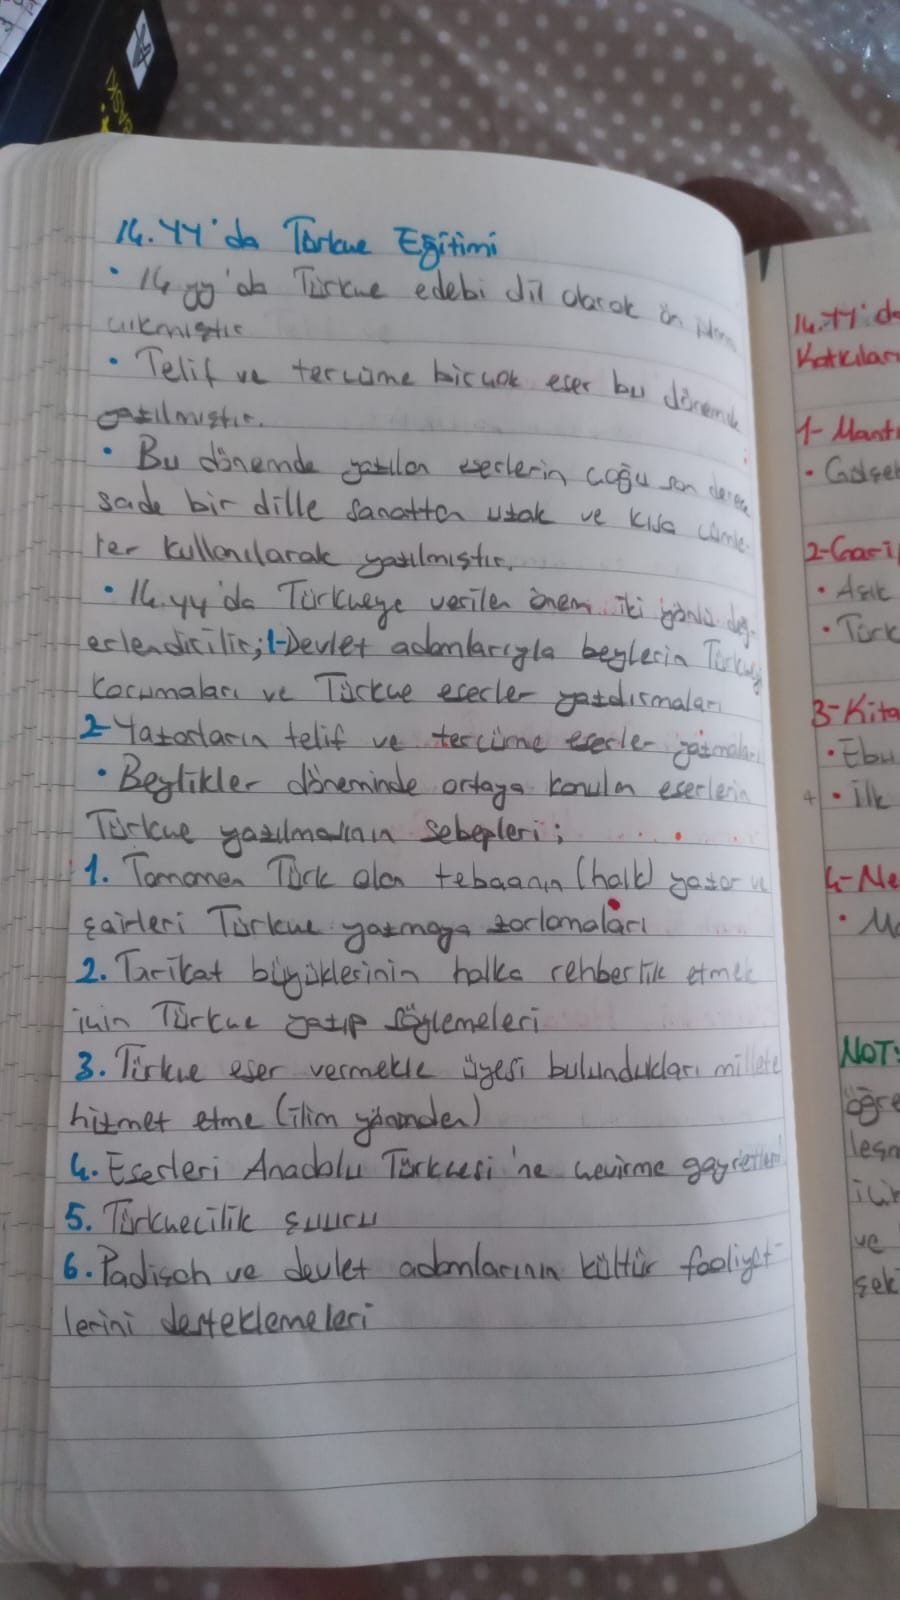 14.YY'da Türkçe Eğitimi
• 14 yy'da Türkçe edebi dil olarak ön plana
çıkmıştır
• Telif ve tercüme birçok eser bu dönemde
yazılmıştır.
• Bu dönemde yazılan eserlerin çoğu son derece
sade bir dille sanattan uzak ve kısa cümle-
ler kullanılarak yazılmıştır.
• 14.yy'da Türkçeye verilen önem iki yönlü değ-
erlendirilir; 1-Devlet adamlarıyla beylerin Türkçeyi
korumaları ve Türkçe eserler yazdırmaları
2-Yazarların telif ve tercüme eserler yazmaları
• Beylikler döneminde ortaya konulan eserlerin
Türkçe yazılmasının sebepleri;
1. Tamamen Türk olan tebaanın (halk) yazar ve
şairleri Türkçe yazmaya zorlamaları
2. Tarikat büyüklerinin halka rehberlik etmek
için Türkçe yazıp söylemeleri
3. Türkçe eser vermekle üyesi bulundukları millete
hizmet etme (ilim yönünden)
4. Eserleri Anadolu Türkçesi'ne çevirme gayretleri
5. Türkçecilik şuuru
6. Padişah ve devlet adamlarının kültür faaliyet-
lerini desteklemeleri
14.YY'da
Katkıları
1- Mantı
• Gülşeh
2-Garip
• Aşık
• Türk
3-Kita
• Ebu
+ • İlk
4-Ne
• Me
NOT:
öğre
leşm
için
ve
şek